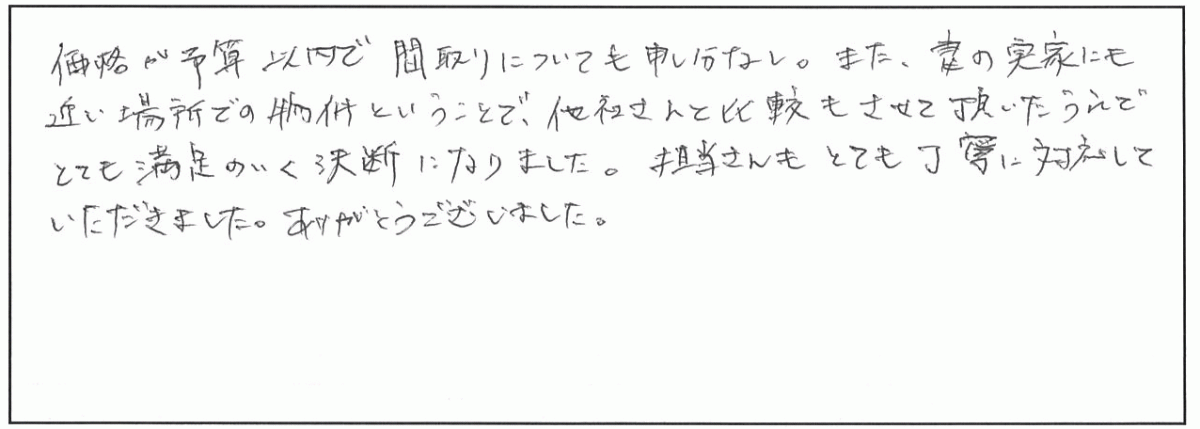 価格が予算以内で間取りについても申し分なし。また、妻の実家にも
近い場所での物件ということで、他社さんと比較もさせて頂いたうえで
とても満足のいく決断になりました。担当さんもとても丁寧に対応して
いただきました。ありがとうございました。